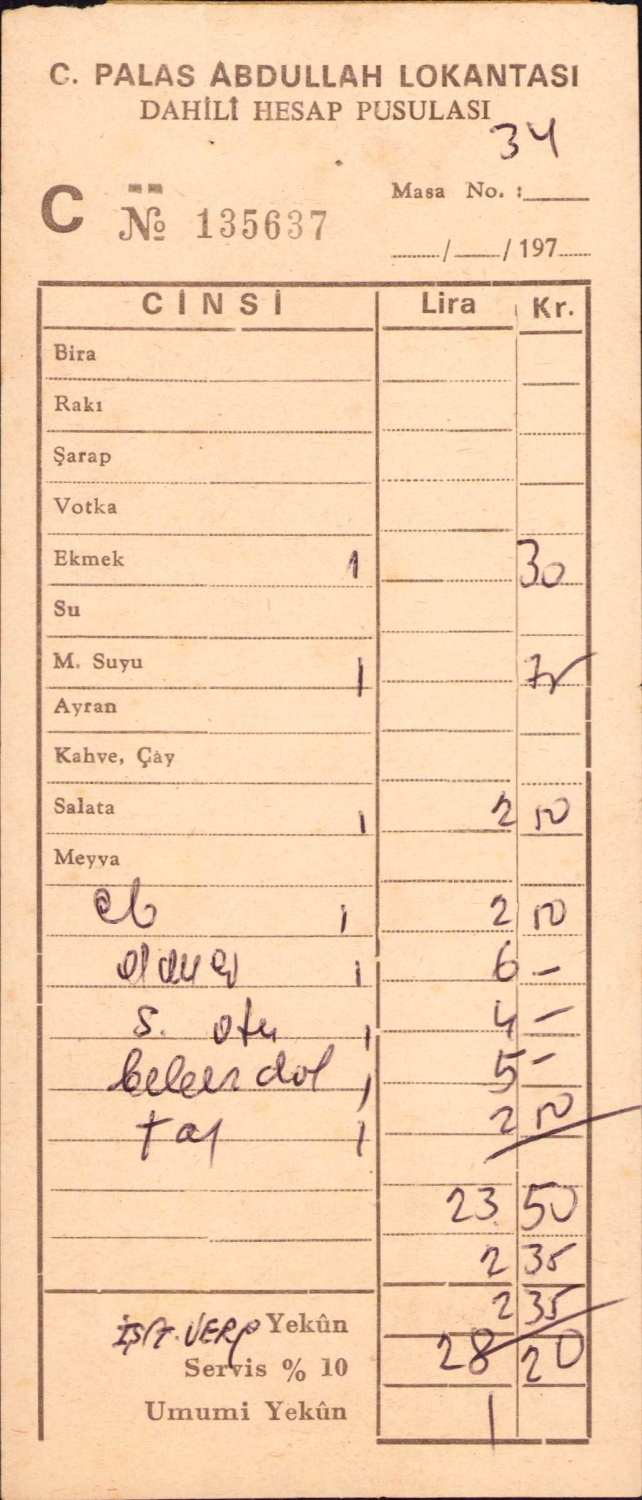 C. PALAS ABDULLAH LOKANTASI
DAHİLİ HESAP PUSULASI
34
Masa No. :
C № 135637
/ / 197
CİNSİ Lira Kr.
Bira
Rakı
Şarap
Votka
Ekmek 1 30
Su
M. Suyu 1 75
Ayran
Kahve, Çay
Salata 1 2 50
Meyva
1 2 50
1 6 -
S. otu 1 4 -
dol 1 5 -
1 2 50
23 50
2 35
2 35
İŞ/T. VERG Yekûn
28 20
Servis % 10
Umumi Yekûn